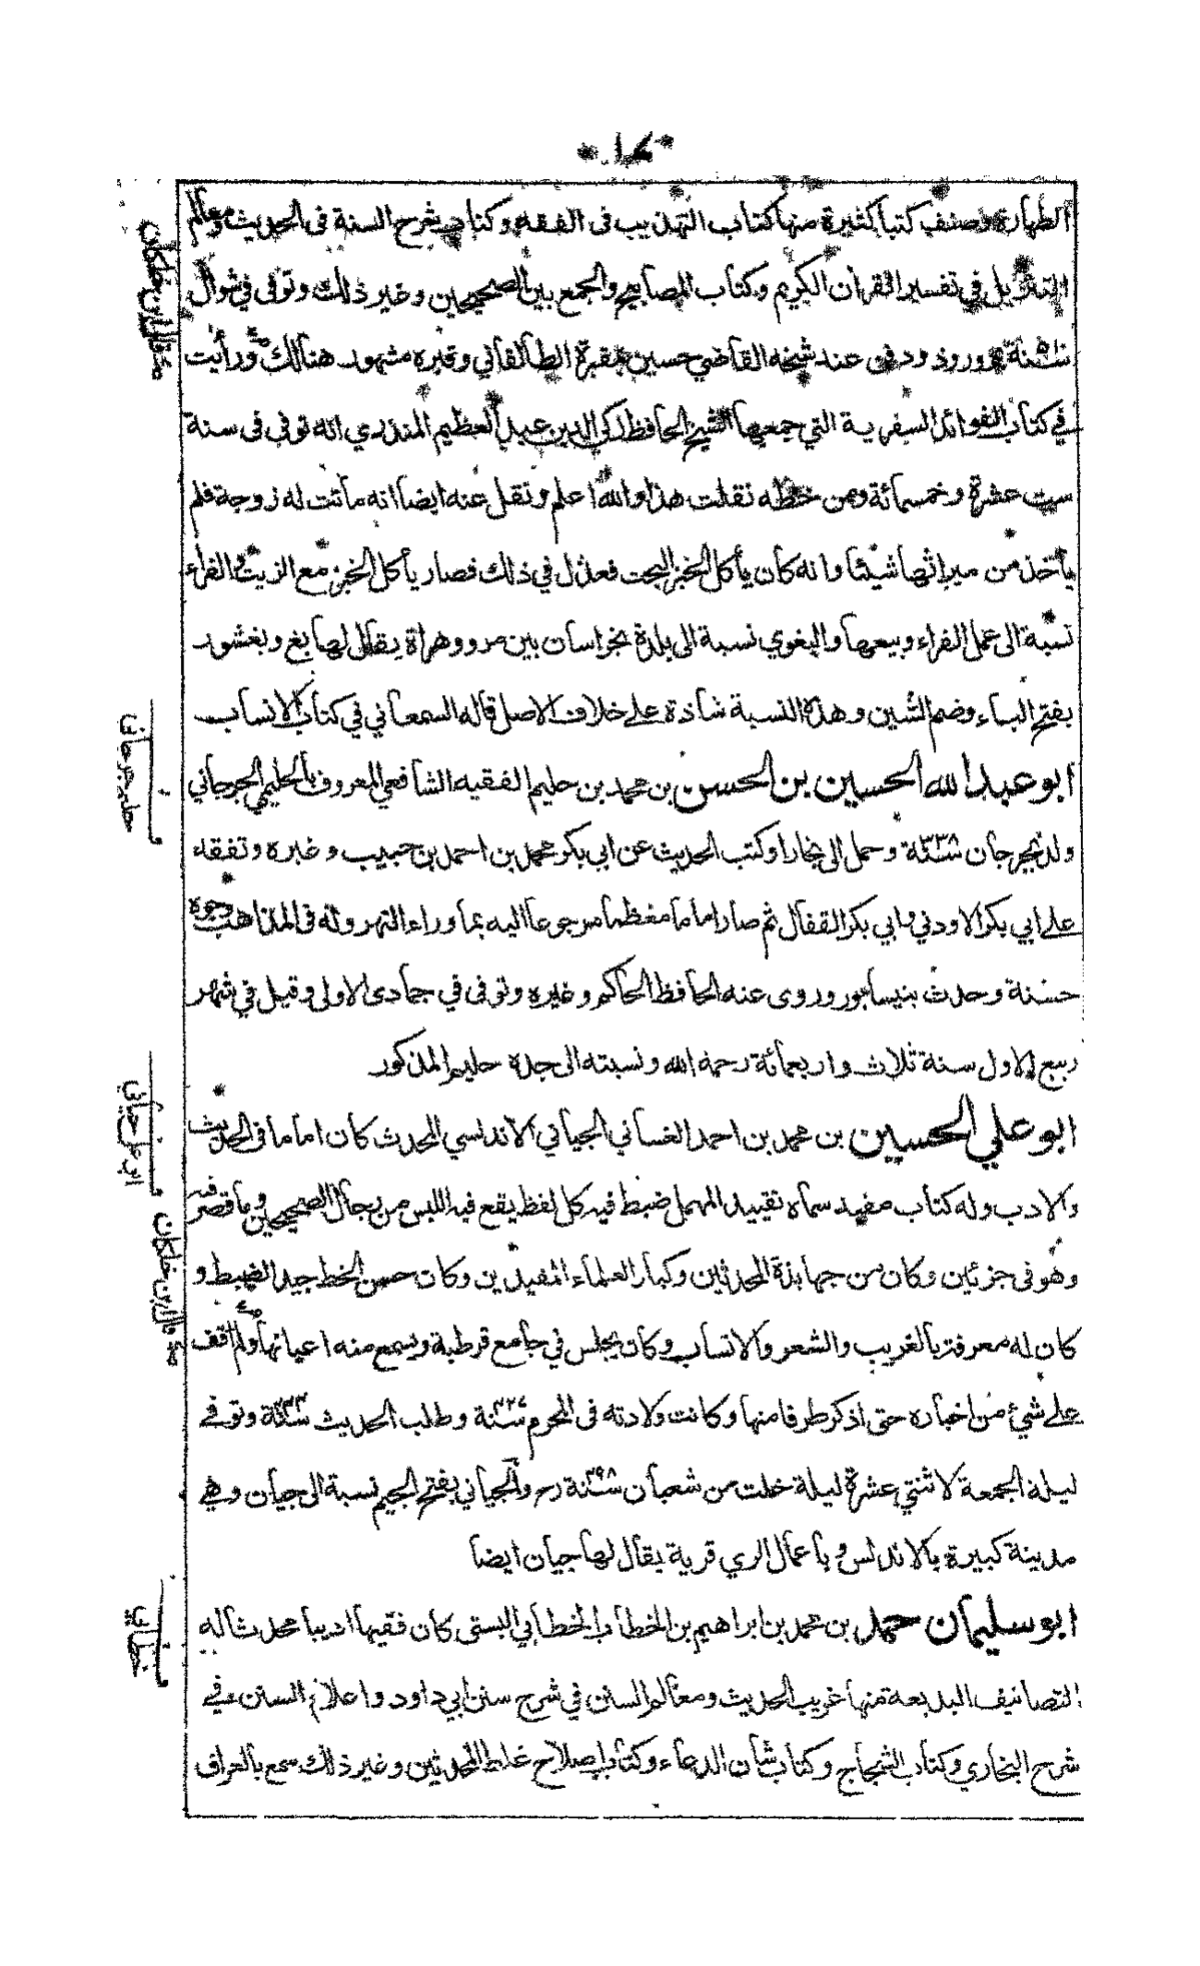 الطهارة وصنف كتبا كثيرة منها كتاب التهذيب فى الفقه وكتاب شرح السنة فى الحديث ومعالم
التنزيل في تفسير القران الكريم وكتاب المصابيح والجمع بين الصحيحين وغير ذلك وتوفى في شوال
بمروروذ ودفن عند شيخه القاضي حسين بمقبرة الطالقاني وقبره مشهور هنالك ورأيت
في كتاب الفوائد السفرية التي جمعها الشيخ الحافظ زكي الدين عبد العظيم المنذري انه توفي فى سنة
ست عشرة وخمسمائة ومن خطه نقلت هذا والله اعلم ونقل عنه ايضا انه ماتت له زوجة فلم
يأخذ من ميراثها شيئا وانه كان يأكل الخبز البحت فعذل في ذلك فصار يأكل الخبز مع الزيت والفراء
نسبة الى عمل الفراء وبيعها والبغوي نسبة الى بلدة بخراسان بين مرو وهراة يقال لها بغ وبغشور
بفتح الباء وضم الشين وهذه النسبة شاذة على خلاف الاصل قاله السمعاني في كتاب الانساب
ابو عبد الله الحسين بن الحسن بن محمد بن حليم الفقيه الشافعي المعروف بالحليمي الجرجاني
ولد بجرجان ٣٣٨ سنة وحمل الى بخارا وكتب الحديث عن ابي بكر محمد بن احمد بن حبيب وغيره وتفقه
على ابي بكر الاودني وابي بكر القفال ثم صار اماما معظما مرجوعا اليه بما وراء النهر وله فى المذاهب وجوه
حسنة وحدث بنيسابور وروى عنه الحافظ الحاكم وغيره وتوفى في جمادى الاولى وقيل في شهر
ربيع الاول سنة ثلاث واربعمائة رحمه الله ونسبته الى جده حليم المذكور
ابو علي الحسين بن محمد بن احمد الغساني الجياني الاندلسي المحدث كان اماما فى الحديث
والادب وله كتاب مفيد سماه تقييد المهمل ضبط فيه كل لفظ يقع فيه اللبس من رجال الصحيحين وما قصر فيه
وهو فى جزئين وكان من جهابذة المحدثين وكبار العلماء المفيدين وكان حسن الخط جيد الضبط و
كان له معرفة بالغريب والشعر والانساب وكان يجلس في جامع قرطبة ويسمع منه اعيانها ولم اقف
على شيء من اخباره حتى اذكر طرفا منها وكانت ولادته فى المحرم سنة وطلب الحديث سنة وتوفي
ليلة الجمعة لاثنتي عشرة ليلة خلت من شعبان سنة رح والجياني بفتح الجيم نسبة الى جيان وهي
مدينة كبيرة بالاندلس وباعمال الري قرية يقال لها جيان ايضا
ابو سليمان حمد بن محمد بن ابراهيم بن الخطاب الخطابي البستى كان فقيها اديبا محدثا له
التصانيف البديعة منها غريب الحديث ومعالم السنن في شرح سنن ابي داود واعلام السنن في
شرح البخاري وكتاب الشحاح وكتاب شأن الدعاء وكتاب اصلاح غلط المحدثين وغير ذلك سمع بالعراق
قال ابن خلكان
حليم جرجانى
ابو على جيانى
قال ابن خلكان
خطابي